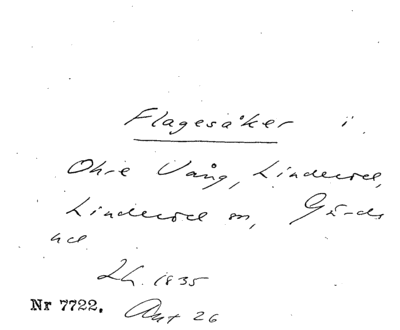 Flagesåker i
Ohre Vång, Linderöd,
Linderöd sn, Gärds
hd.
Lh. 1835
Nr 7722. Akt 26